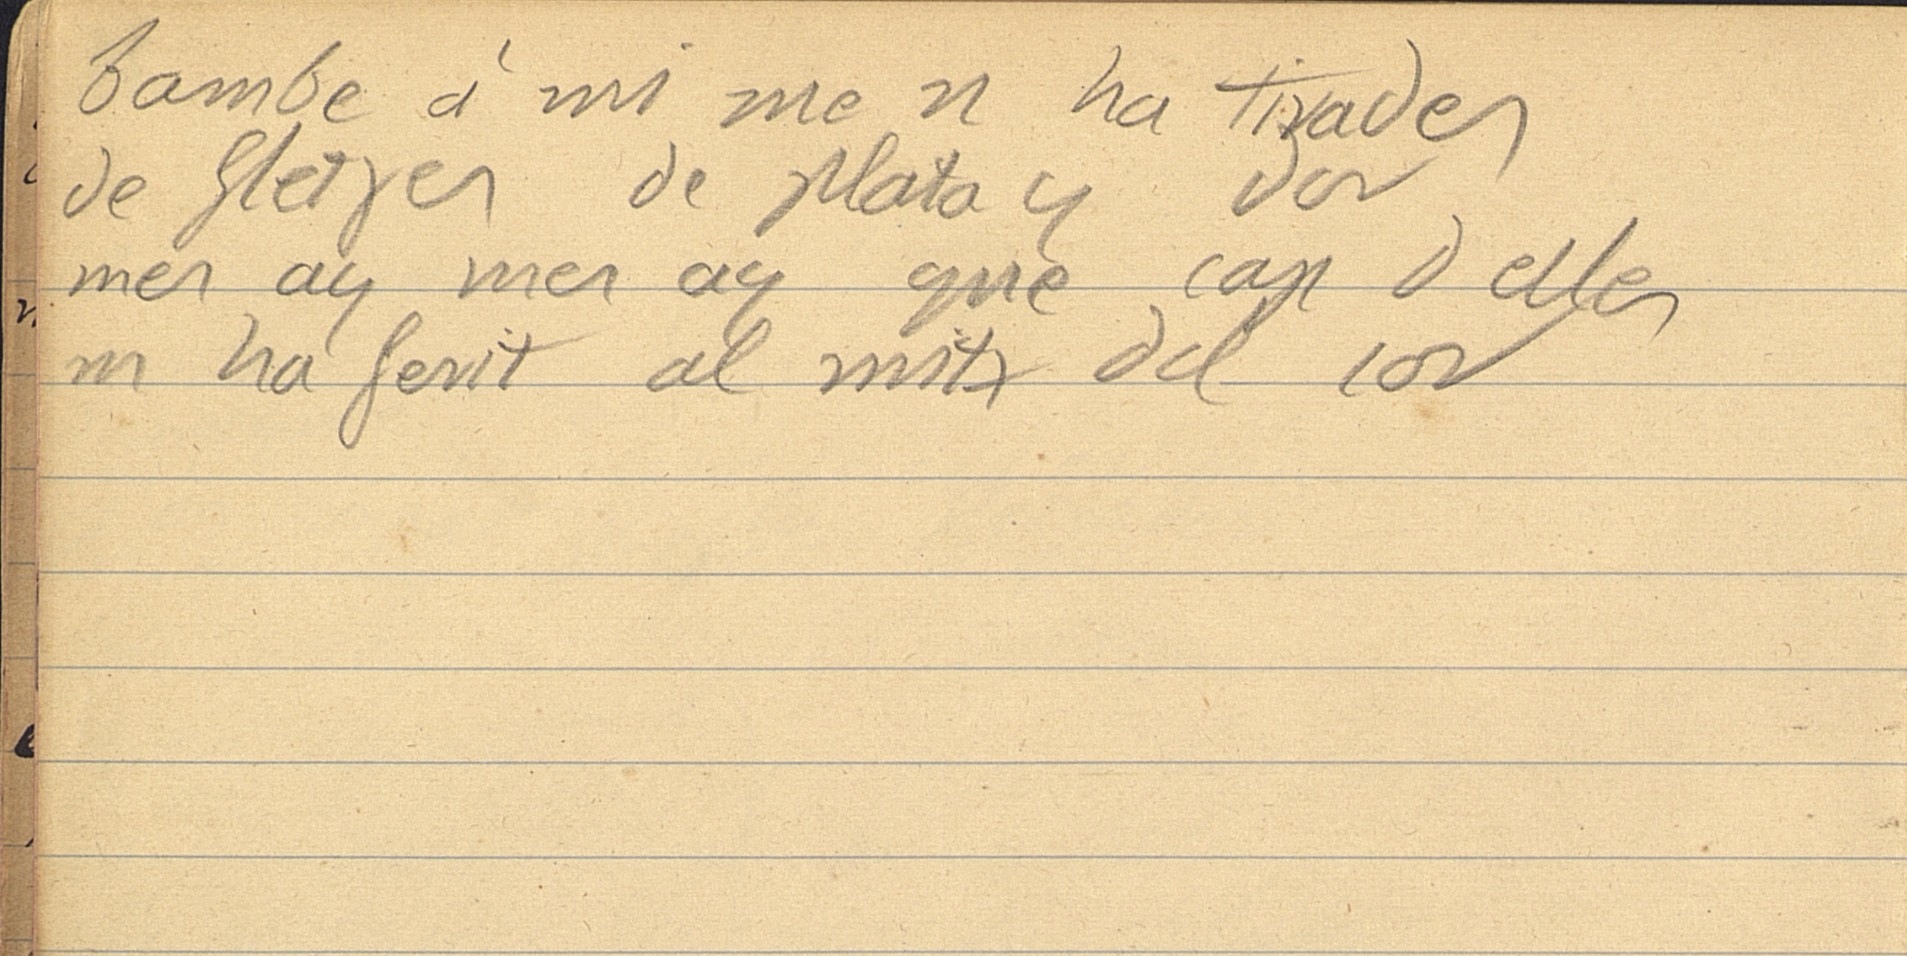 tambe á mi me n ha tirades
de fletxes de plata y dor
mes ay mes ay que cap d elles
m ha ferit al mitx del cor